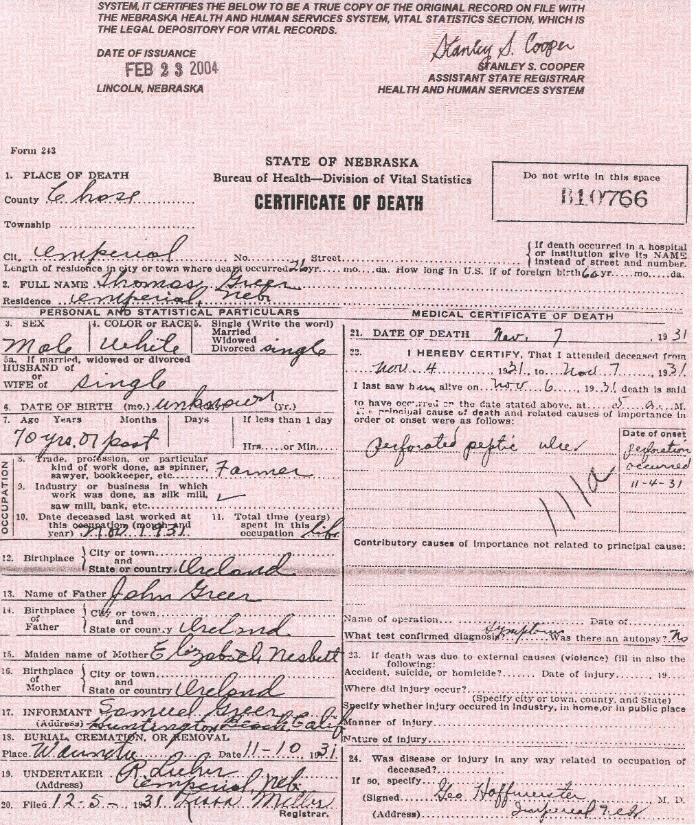 SYSTEM, IT CERTIFIES THE BELOW TO BE A TRUE COPY OF THE ORIGINAL RECORD ON FILE WITH
THE NEBRASKA HEALTH AND HUMAN SERVICES SYSTEM, VITAL STATISTICS SECTION, WHICH IS
THE LEGAL DEPOSITORY FOR VITAL RECORDS.
DATE OF ISSUANCE
FEB 23 2004
LINCOLN, NEBRASKA
Stanley S. Cooper
STANLEY S. COOPER
ASSISTANT STATE REGISTRAR
HEALTH AND HUMAN SERVICES SYSTEM
Form 243
STATE OF NEBRASKA
Bureau of Health—Division of Vital Statistics
CERTIFICATE OF DEATH
Do not write in this space
B10766
1. PLACE OF DEATH
County Chase
Township
City Imperial No. Street
If death occurred in a hospital
or institution give its NAME
instead of street and number.
Length of residence in city or town where death occurred yr. mo. da. How long in U.S. if of foreign birth 60 yr. mo. da.
2. FULL NAME Thomas Greer
Residence Imperial, Neb
PERSONAL AND STATISTICAL PARTICULARS
3. SEX
Male
4. COLOR or RACE
White
5. Single (Write the word)
Married
Widowed
Divorced single
5a. If married, widowed or divorced
HUSBAND of
or
WIFE of single
6. DATE OF BIRTH (mo.) unknown (yr.)
7. Age Years Months Days If less than 1 day
70 yrs. or past Hrs. or Min.
OCCUPATION
8. Trade, profession, or particular
kind of work done, as spinner,
sawyer, bookkeeper, etc. Farmer
9. Industry or business in which
work was done, as silk mill,
saw mill, bank, etc.
10. Date deceased last worked at
this occupation (month and
year) Nov. 1931
11. Total time (years)
spent in this
occupation life
12. Birthplace City or town
and
State or country Ireland
13. Name of Father John Greer
14. Birthplace of Father City or town
and
State or country Ireland
15. Maiden name of Mother Elizabeth Nesbett
16. Birthplace of Mother City or town
and
State or country Ireland
17. INFORMANT Samuel Greer
(Address) Huntington Beach, Calif
18. BURIAL, CREMATION, OR REMOVAL
Place Wauneta Date 11-10 1931
19. UNDERTAKER
(Address) Imperial, Neb.
20. Filed 12-5- 1931 Miller
Registrar.
MEDICAL CERTIFICATE OF DEATH
21. DATE OF DEATH Nov. 7, 1931
22. I HEREBY CERTIFY, That I attended deceased from
Nov. 4 1931 to Nov 7, 1931
I last saw him alive on Nov. 6, 1931 death is said
to have occurred on the date stated above, at 5 a. M.
The principal cause of death and related causes of importance in
order of onset were as follows:
perforated peptic ulcer
Date of onset
perforation
occurred
11-4-31
111a
Contributory causes of importance not related to principal cause:
Name of operation Date of
What test confirmed diagnosis? Symptoms Was there an autopsy? No
23. If death was due to external causes (violence) fill in also the
following:
Accident, suicide, or homicide? Date of injury 19
Where did injury occur?
(Specify city or town, county, and State)
Specify whether injury occured in industry, in home, or in public place
Manner of injury
Nature of injury
24. Was disease or injury in any way related to occupation of
deceased?
If so, specify
(Signed) Geo Hoffmeister M. D.
(Address) Imperial Neb